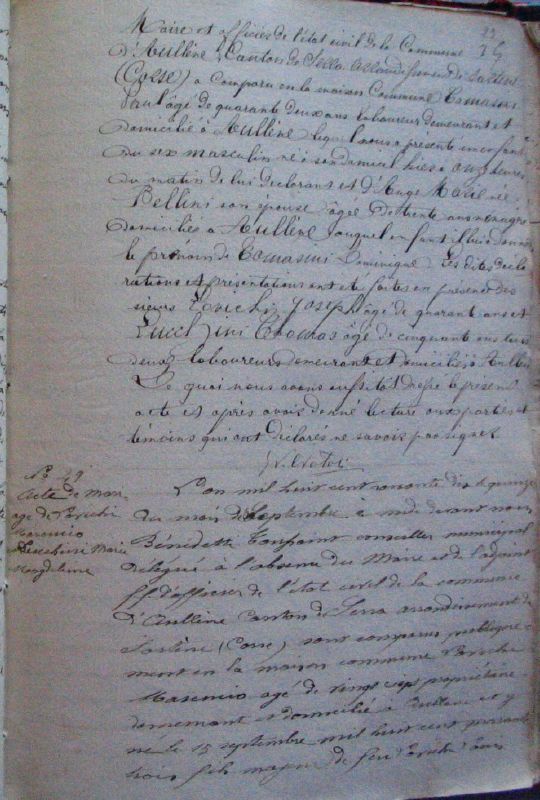 Maire et officier de l'état civil de la Commune
d'Aullène, Canton de Serra arrondissement de Sartène
(Corse) a comparu en la maison Commune Tomasini
Paul âgé de quarante deux ans laboureur demeurant et
domicilié à Aullène lequel nous a présenté un enfant
du sex masculin né à son domicile hier à onze heures
du matin de lui déclarant et d'Ange Marie née
Bellini son épouse âgée de trente ans ménagère
domiciliés à Aullène auquel enfant il lui a donné
le prénom de Tomasini Dominique Les dites décla
rations et présentation ont été faites en présence des
sieurs Joseph âgé de quarante ans et
Lucchini Thomas âgé de cinquante ans tous
deux laboureurs demeurant et domiciliés à Aullène
De quoi nous avons aussitôt dressé le présent
acte et après avoir donné lecture aux parties et
témoins qui ont déclarés ne savoir pas signer
No 29
Acte de mari
age de
Mascimio
Lucchini Marie
Magdeleine
L'an mil huit cent nonante dix quinze
du mois de Septembre à midi devant nous
Bénedetti Toussaint conseiller municipal
délégué à l'absence du Maire et de l'adjoint
ff d'officier de l'état civil de la commune
d'Aullène Canton de Serra arrondissement de
Sartène (Corse) sont comparus publique
ment en la maison commune
Mascimio agé de vingt sept propriétaire
demeurant et domicilié à Aullène et y
né le 15 septembre mil huit cent soixante
trois fils majeur de feu